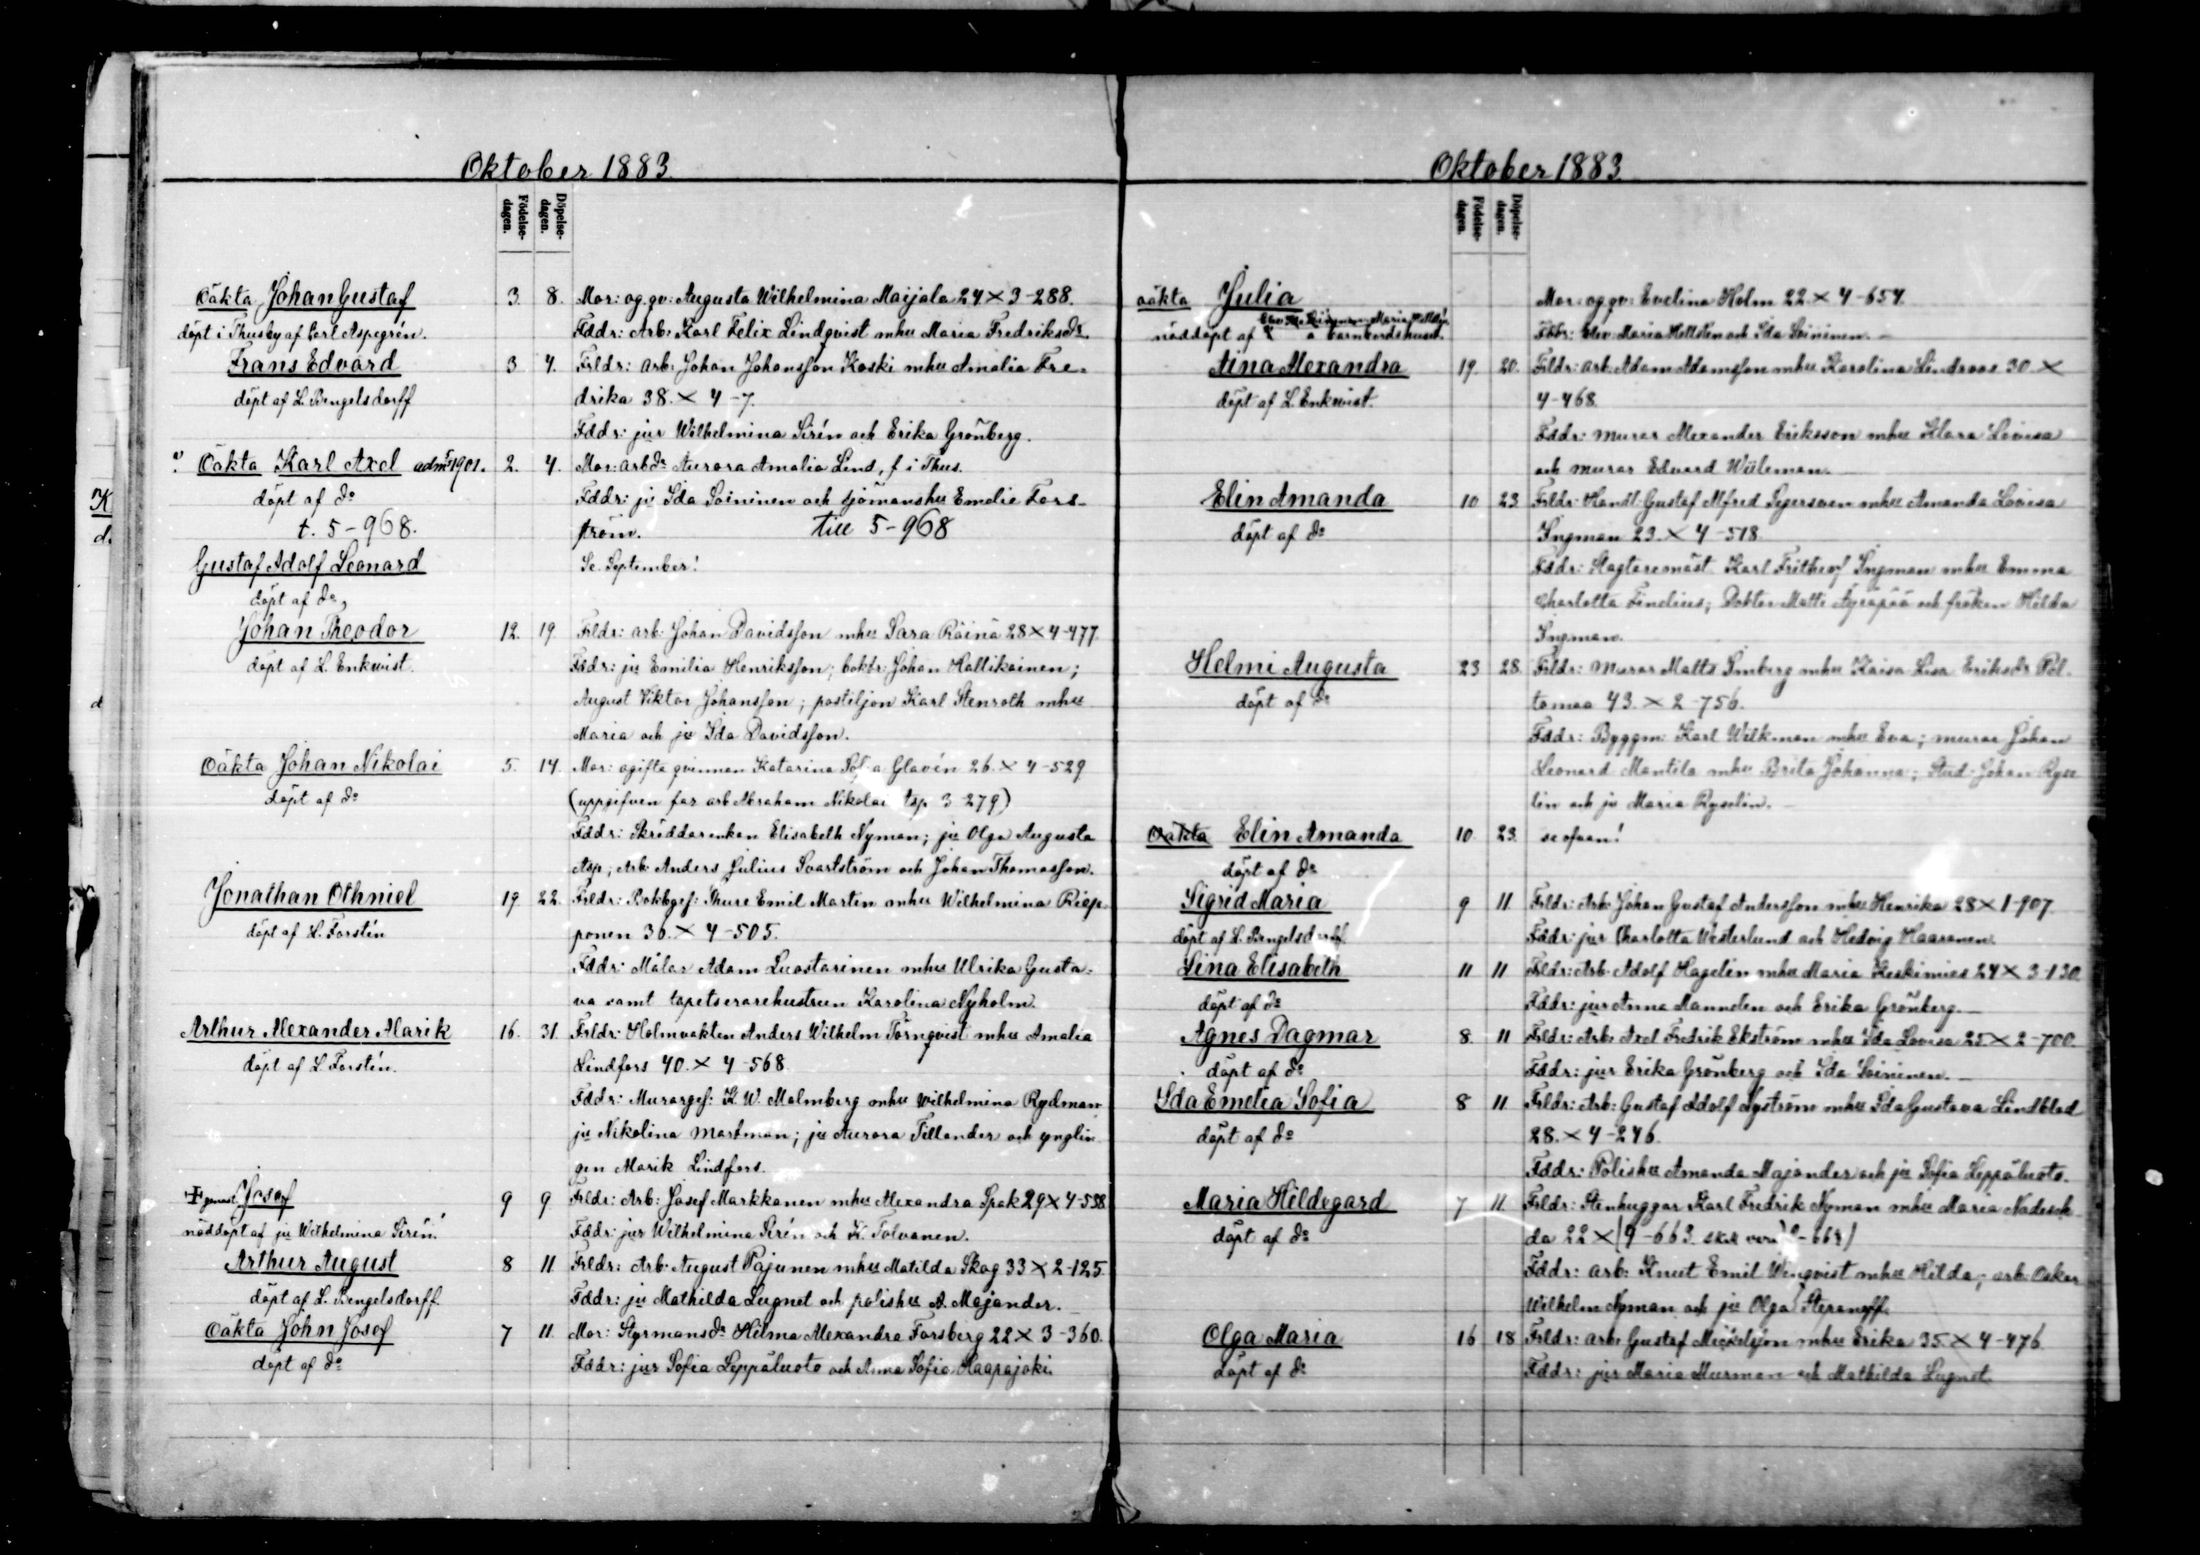 Oktober 1883
Födelse-dagen. Döpelse-dagen.
Oäkta Johan Gustaf 3. 8. Mor: og. qv: Augusta Wilhelmina Maijala 24 × 3-288.
döpt i Thusby af Carl Aspegrén. Fddr: Arb: Karl Felix Lindqvist mhu Maria Fredriksdr
Frans Edvard 3 4. Frldr: arb: Johan Johansson Koski mhu Amalia Fre-
döpt af L. Bengelsdorff drika 38. × 4-7.
Fddr: jur Wilhelmina Sirén och Erika Grönberg.
Oäkta Karl Axel adm 1901. 2. 4. Mor: arbdr Aurora Amalia Lind, f i Thus.
döpt af do Fddr: ju Ida Soininen och sjömanshu Emelie Fors-
t. 5-968. ström. till 5-968
Gustaf Adolf Leonard Se September!
döpt af do,
Johan Theodor 12. 19 Frldr: arb: Johan Davidsson mhu Sara Räinä 28 × 4-477.
döpt af L. Enkwist. Fddr: ju Emilia Henriksson; bokbr: Johan Hallikainen;
August Viktor Johansson; postiljon Karl Stenroth mhu
Maria och ju Ida Davidsson.
Oäkta Johan Nikolai 5. 14. Mor: ogifta qvinnan Katarina Glavén 26. × 4-529
döpt af do (uppgifven far arb Abraham Nikolai Asp 3-279)
Fddr: Skräddarenkan Elisabeth Nyman; ju Olga Augusta
Asp; Arb: Anders Julius Svartström och Johan Thomasson.
Jonathan Othniel 19. 22. Frldr: Bokbgef: Thure Emil Martin mhu Wilhelmina Riep-
döpt af H. Forstén ponen 36. × 4-505.
Fddr: Målar Adam Luostarinen mhu Ulrika Gusta-
va samt tapetserarehustrun Karolina Nyholm.
Arthur Alexander Alarik 16. 31. Frldr: Holmvakten Anders Wilhelm Törnqvist mhu Amalia
döpt af L Forstén. Lindfors 40. × 4-568
Fddr: Murargef: K. W. Malmberg mhu Wilhelmina Rydman
ju Nikolina Martman; ju Aurora Tillander och ynglin
gen Alarik Lindfors.
Josef 9 9 Frldr: Arb: Josef Markkanen mhu Alexandra Spak 29 × 4-538
nöddöpt af ju Wilhelmina Sirén. Fddr: jur Wilhelmina Sirén och K. Tolvanen.
Arthur August 8 11. Frldr: Arb: August Pajunen mhu Matilda Skog 33 × 2-125.
döpt af L. Bengelsdorff. Fddr: ju Mathilda Lugnet och polishu A. Majander.
Oäkta John Josef 7 11. Mor: Styrmansdr Hilma Alexandra Forsberg 22 × 3-360.
döpt af do Fddr: jur Sofia Leppäluoto och Anna Sofia Haapajoki.
Oktober 1883
Födelse-dagen. Döpelse-dagen.
oäkta Julia Mor: og. qv: Evelina Holm 22. × 4-654.
nöddöpt af Maria Hellstén å barnbördshuset. Fddr: Elev: Maria Hellstén och Ida Soininen.
Aina Alexandra 19. 20. Frldr: arb: Adam Adamsson mhu Karolina Lindroos 30. ×
döpt af L. Enkwist. 4-468.
Fddr: murar Alexander Eriksson mhu Klara Lovisa
och murar Edvard Wiileman.
Elin Amanda 10 23 Frldr: Handl: Gustaf Alfred Syersoen mhu Amanda Lovisa
döpt af do Ingman 23. × 4-518.
Fddr: Slagtaremäst. Karl Frithiof Ingman mhu Emma
Charlotta Findius; Doktor Matti Äyräpää och fröken Hilda
Ingman.
Helmi Augusta 23 28 Frldr: Murar Matts Imberg mhu Kaisa Lisa Eriksdr Pol-
döpt af do tomaa 43. × 2-756.
Fddr: Byggm: Karl Wilkman mhu Eva; murar Johan
Leonard Mantila mhu Brita Johanna; Stud: Johan Ryse
lin och ju Maria Ryselin.
Oäkta Elin Amanda 10. 23. se ofvan!
döpt af do
Sigrid Maria 9 11. Frldr: Arb: Johan Gustaf Andersson mhu Henrika 28 × 1-907.
döpt af L. Bengelsdorff. Fddr: jur Charlotta Westerlund och Hedvig Haaranen.
Lina Elisabeth 11 11 Frldr: Arb: Adolf Hagelin mhu Maria Keskimies 24 × 3-130.
döpt af do Fddr: jur Anna Mannelen och Erika Grönberg.
Agnes Dagmar 8. 11 Frldr: Arb: Axel Fredrik Ekström mhu Ida Lovisa 25 × 2-700.
döpt af do Fddr: jur Erika Grönberg och Ida Soininen.
Ida Emelia Sofia 8 11. Frldr: Arb: Gustaf Adolf Nyström mhu Ida Gustava Lindblad
döpt af do 28. × 4-246.
Fddr: Polishu Amanda Majander och ju Sofia Leppäluoto.
Maria Hildegard 7 11. Frldr: Stenhuggar Karl Fredrik Nyman mhu Maria Nadesch-
döpt af do da 22 × (9-663. skall vara 2-664)
Fddr: arb: Knut Emil Winqvist mhu Hilda; arb: Oskar
Wilhelm Nyman och ju Olga Stepanoff.
Olga Maria 16 18. Frldr: arb: Gustaf Mickelsson mhu Erika 35. × 4-476.
döpt af do Fddr: jur Maria Murman och Mathilda Lugnet.